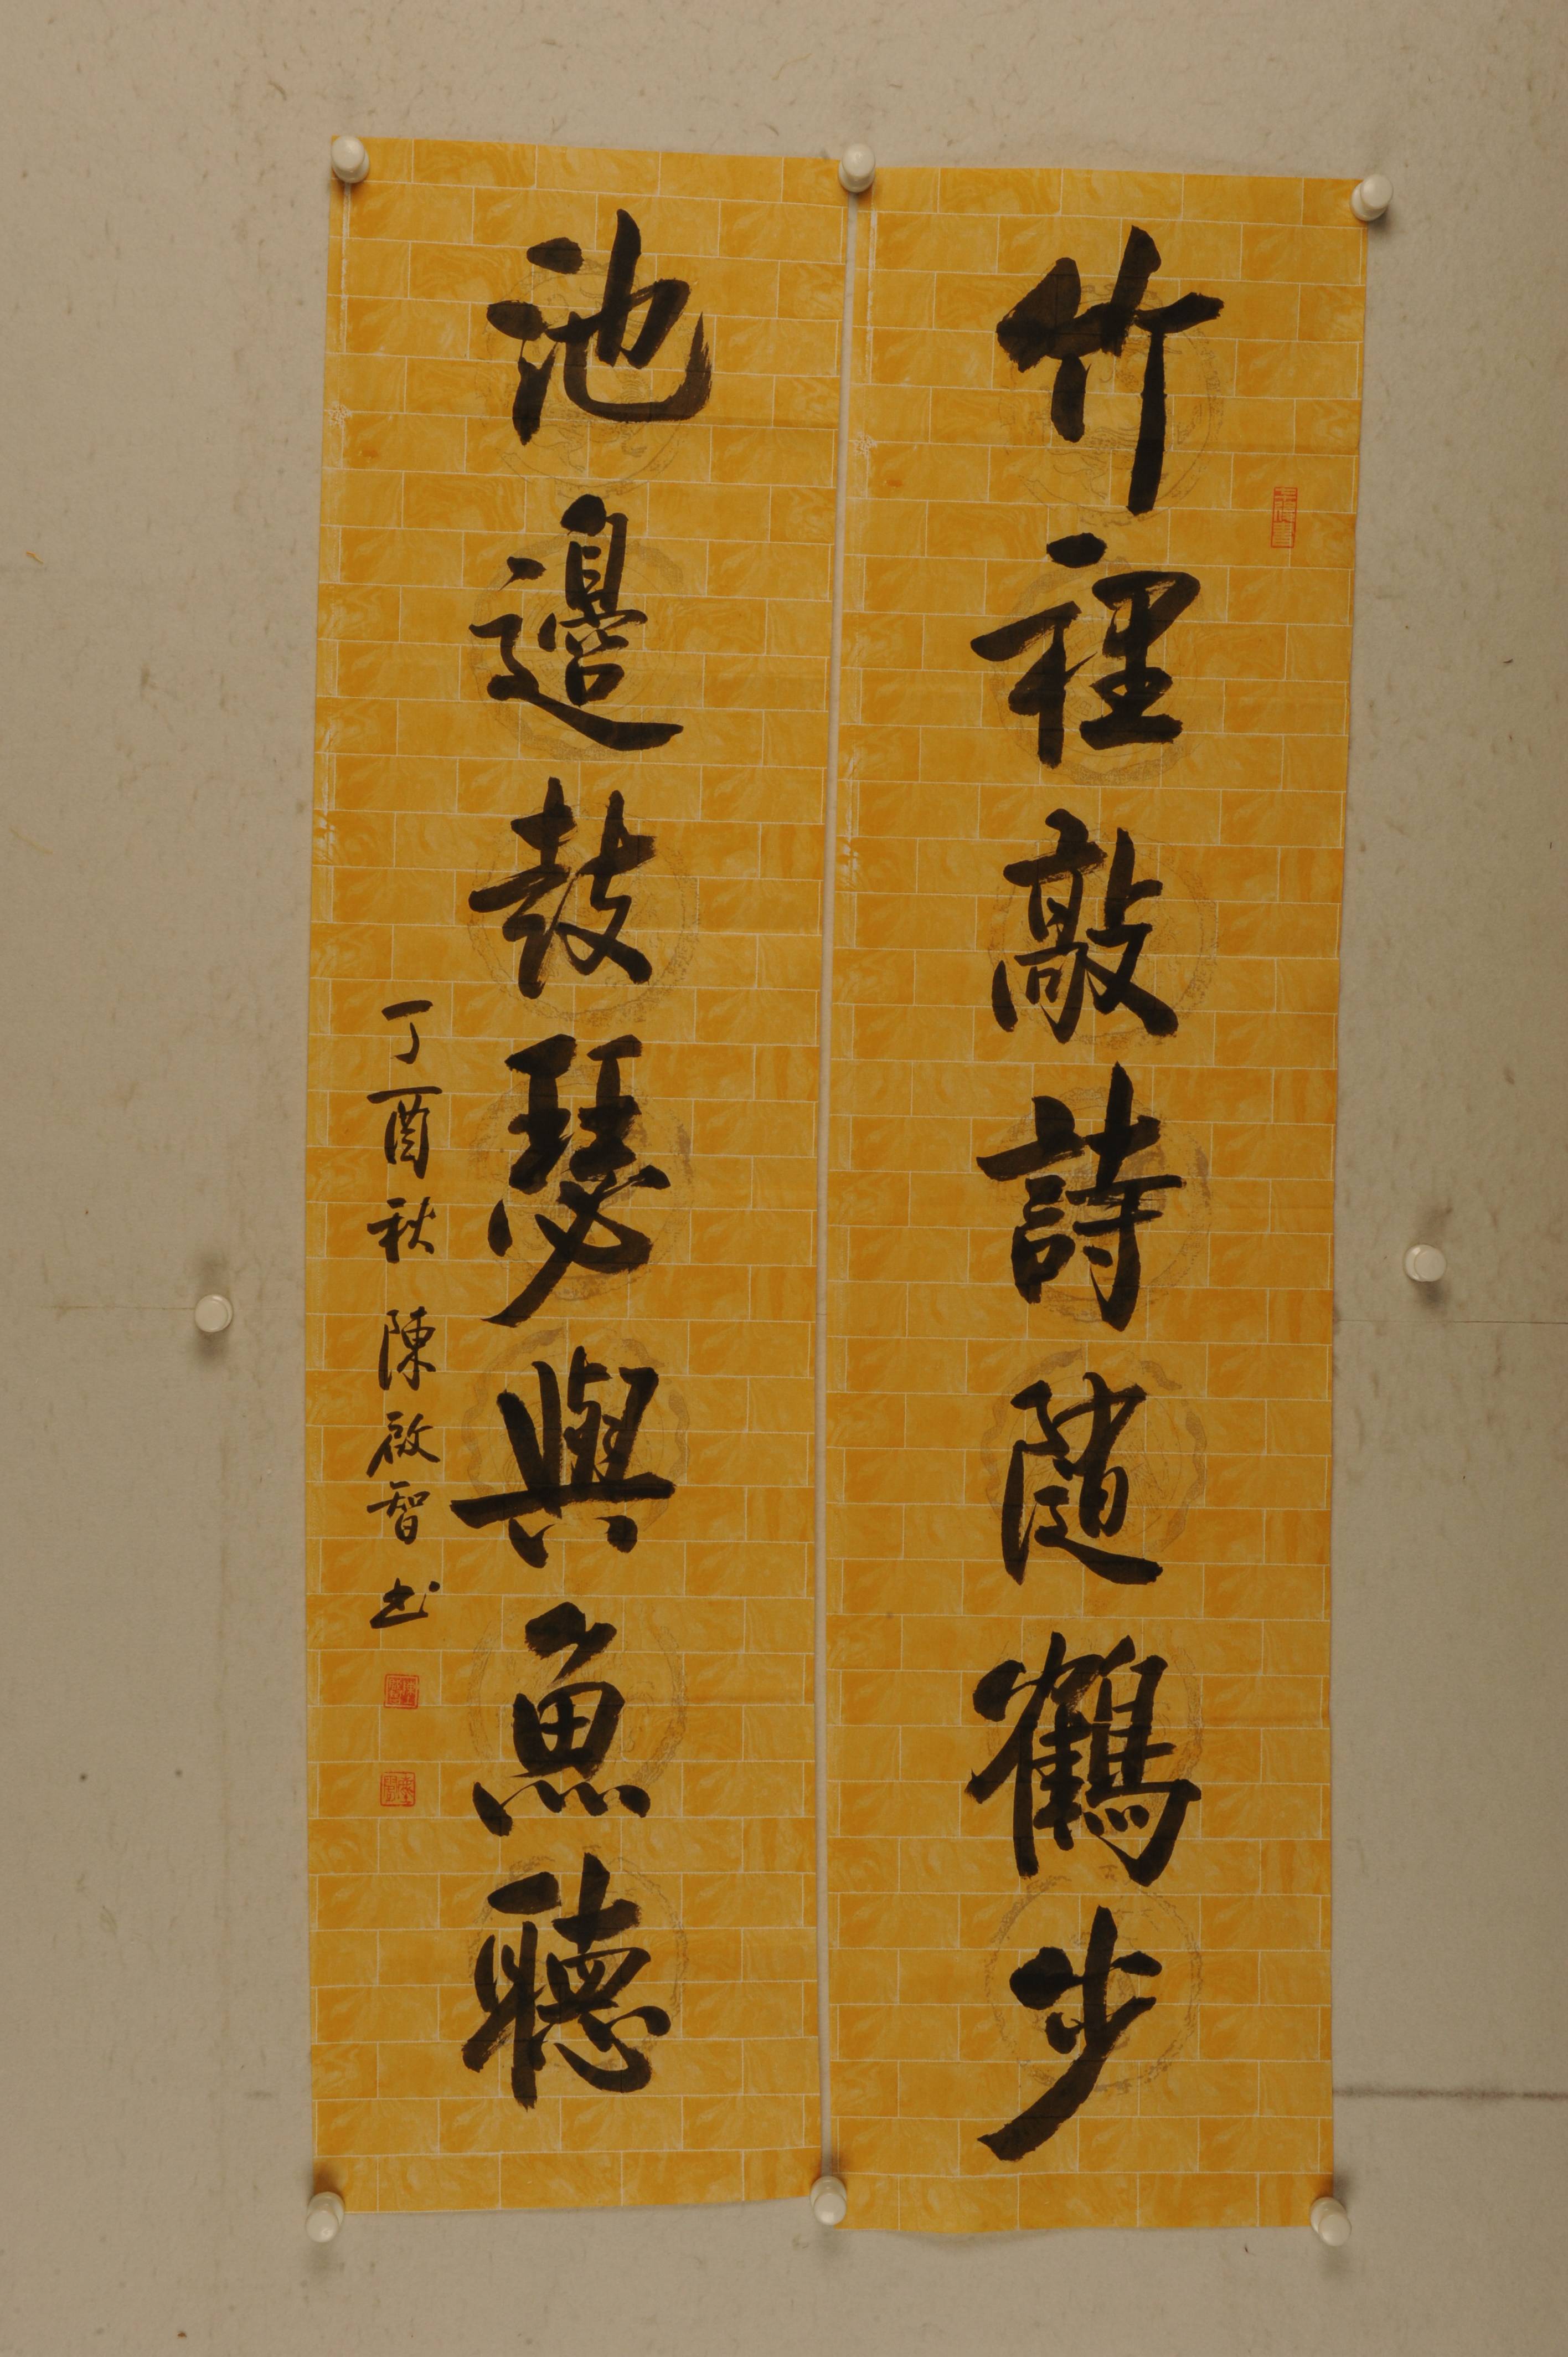 竹裡敲詩随鶴步
池邊鼓瑟與魚聽
丁酉秋 陳啟智书